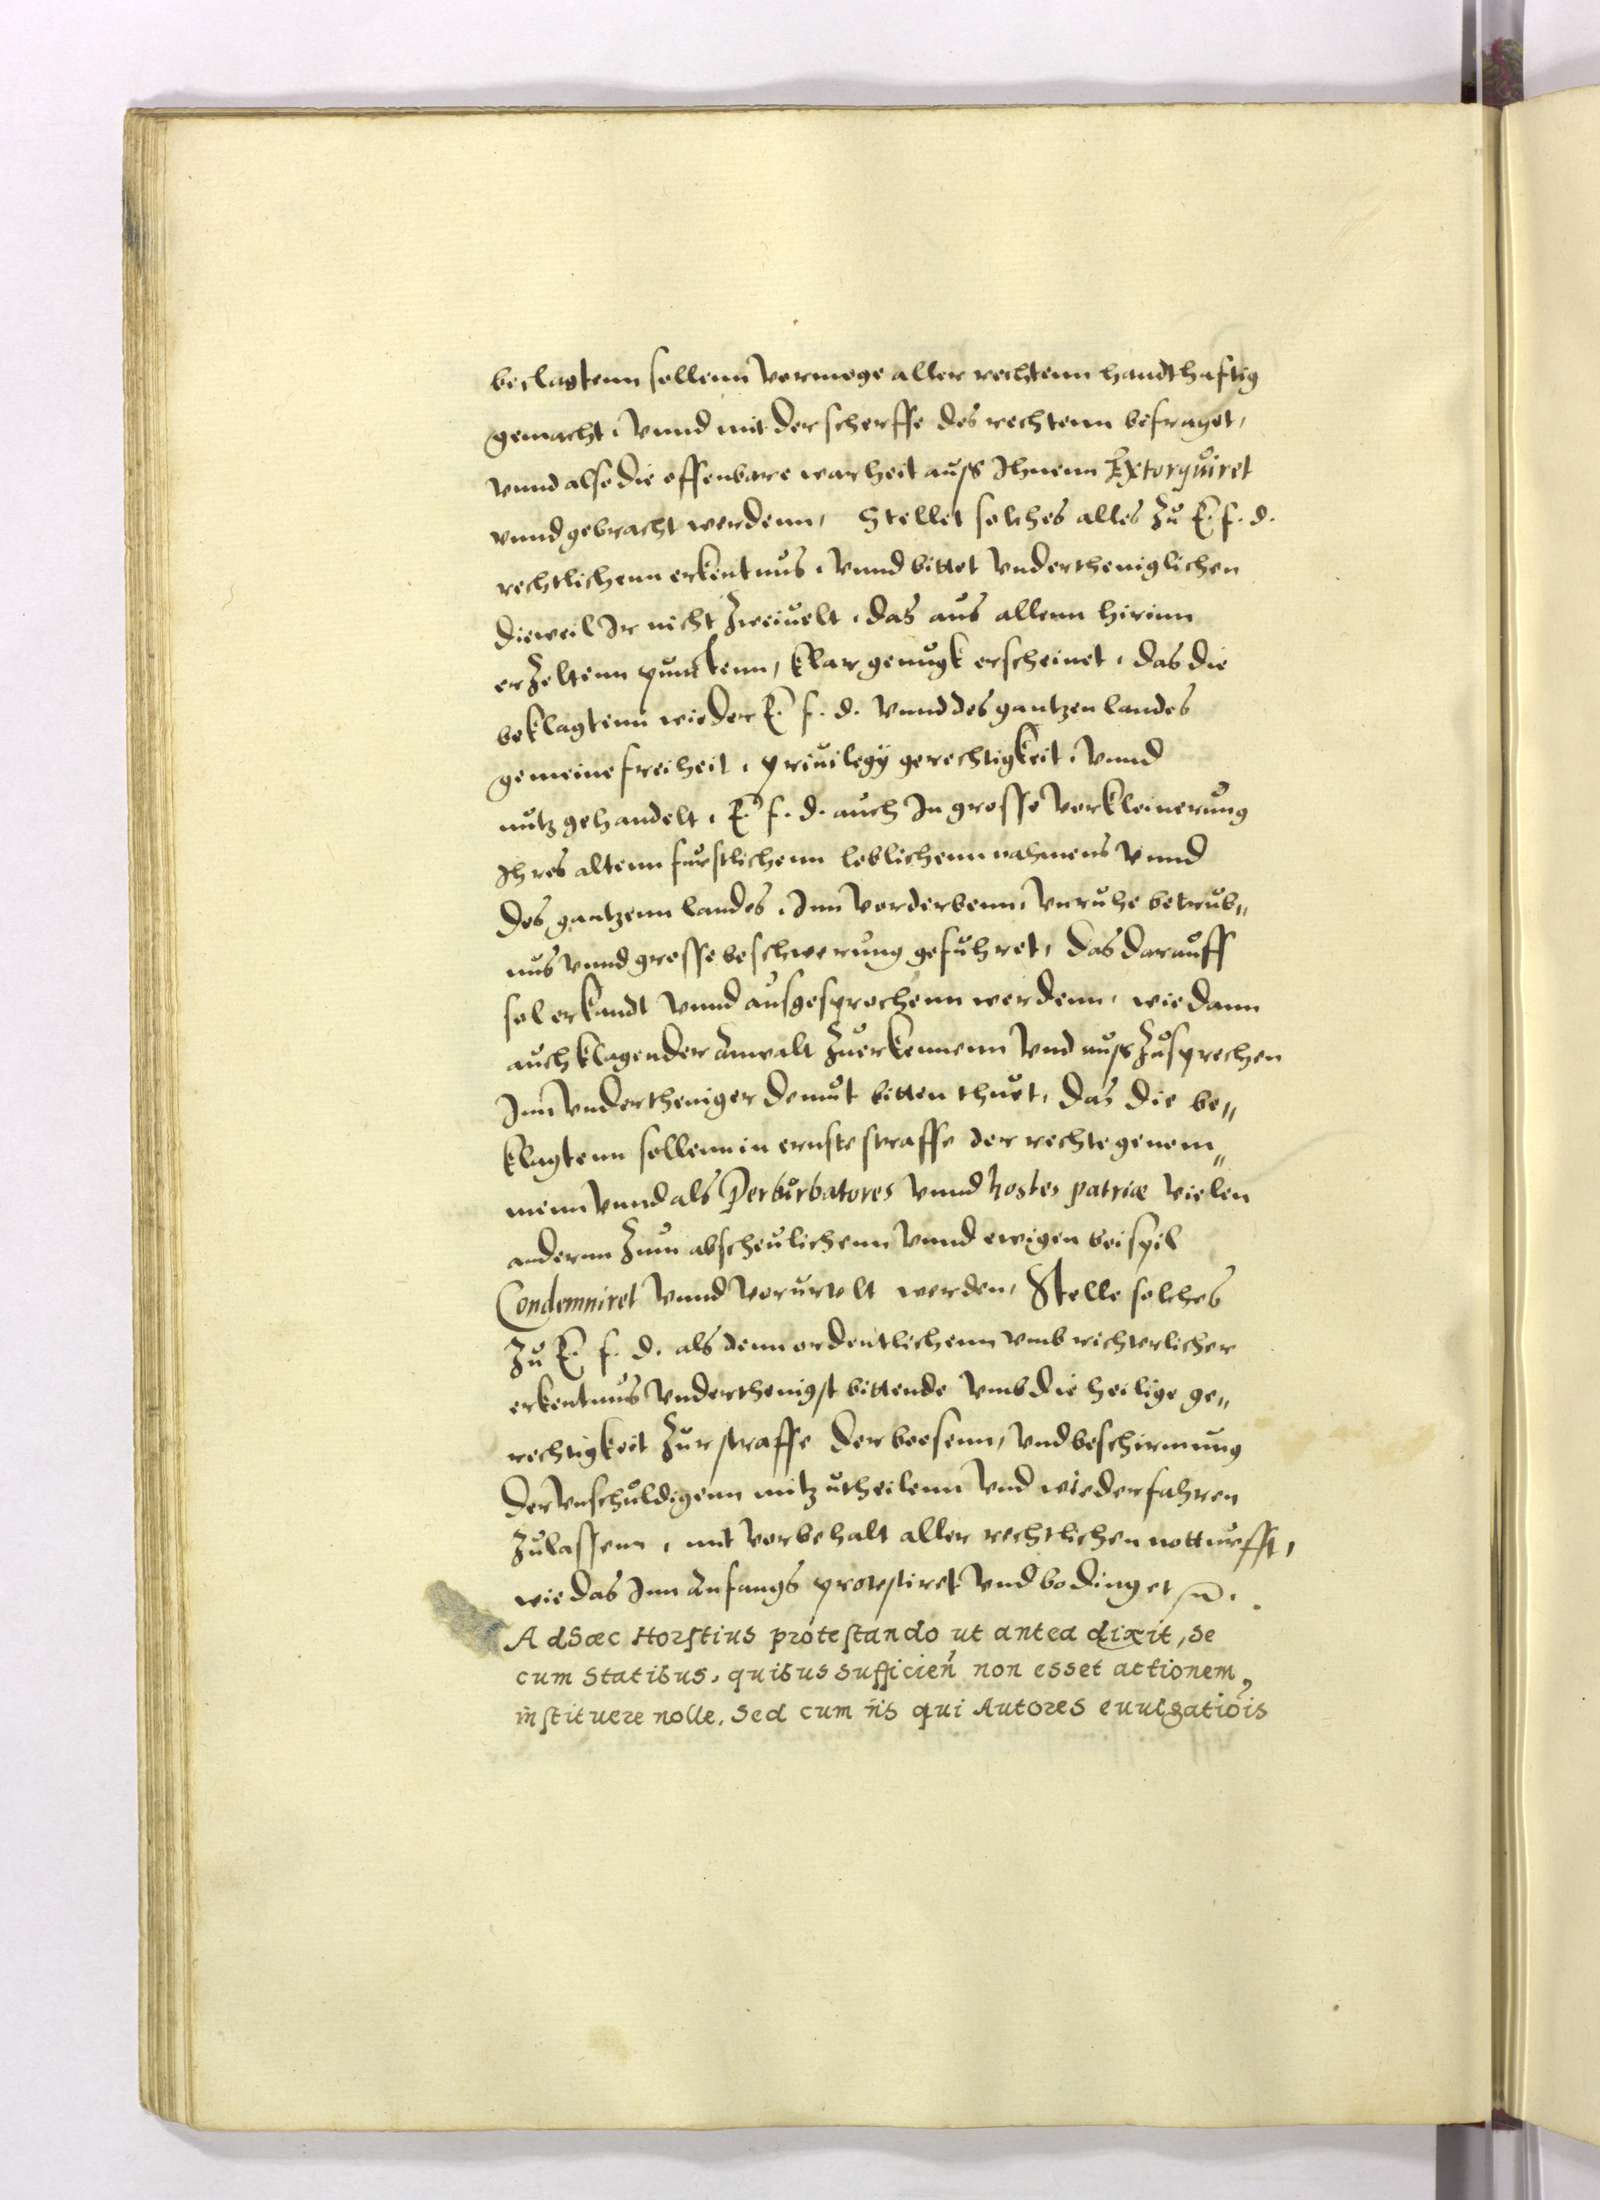 beclagtenn sollenn vermoge aller rechtenn handthaftig
gemacht, vnnd mit der scherffe des rechtenn befraget,
vnnd also die offenbare warheit auss Ihnenn Extorquiret
vnnd gebracht werdenn, Stellet solches alles zu E. f. d.
rechtlichenn erkentnus, vnnd bittet vndertheniglichen
dieweil Ir nicht zweiuelt, das aus allenn hirinn
erzeltenn punctenn, klar genugk erscheinet, das die
beklagtenn wieder E. f. d. vnnd des gantzen landes
gemeine freiheit, priuilegÿ gerechtigkeit, vnnd
nutz gehandelt, E. f. d. auch In grosse verkleinerung
Ihres altenn furstlichenn loblichenn nahmens vnnd
des gantzenn landes, Inn verderbenn, vnruhe betrub„
nus vnnd grosse beschwerung gefuhret, das darauff
sol erkandt vnnd ausgesprochenn werdenn, wie dann
auch klagender Anwalt zuerkennenn vnd auss zusprechen
Inn vndertheniger demut bitten thuet, das die be„
klagtenn sollenn in ernste straffe der rechte genom„
menn vnnd als Perturbatores vnnd hostes patriæ vielen
andernn zum abscheulichenn vnnd ewigen beispil
Condemniret vnnd vorurtelt werden, Stelle solches
zu E. f. d. als denn ordentlichenn vmb richterlicher
erkentnus vnderthenigst bittende vmb die heilige ge„
rechtigkeit zur straffe der boesenn, vnd beschirmung
der vnschuldigenn mitzutheilenn vnd wiederfahren
zulassenn, mit vorbehalt aller rechtlichen notturfft,
wie das Inn Anfangs protestiret vnd bedinget
Ad hæc Horstius protestando ut antea dixit, se
cum statibus, quibus sufficien non esset actionem,
instituere nolle, sed cum iis qui Autores euulgatiois